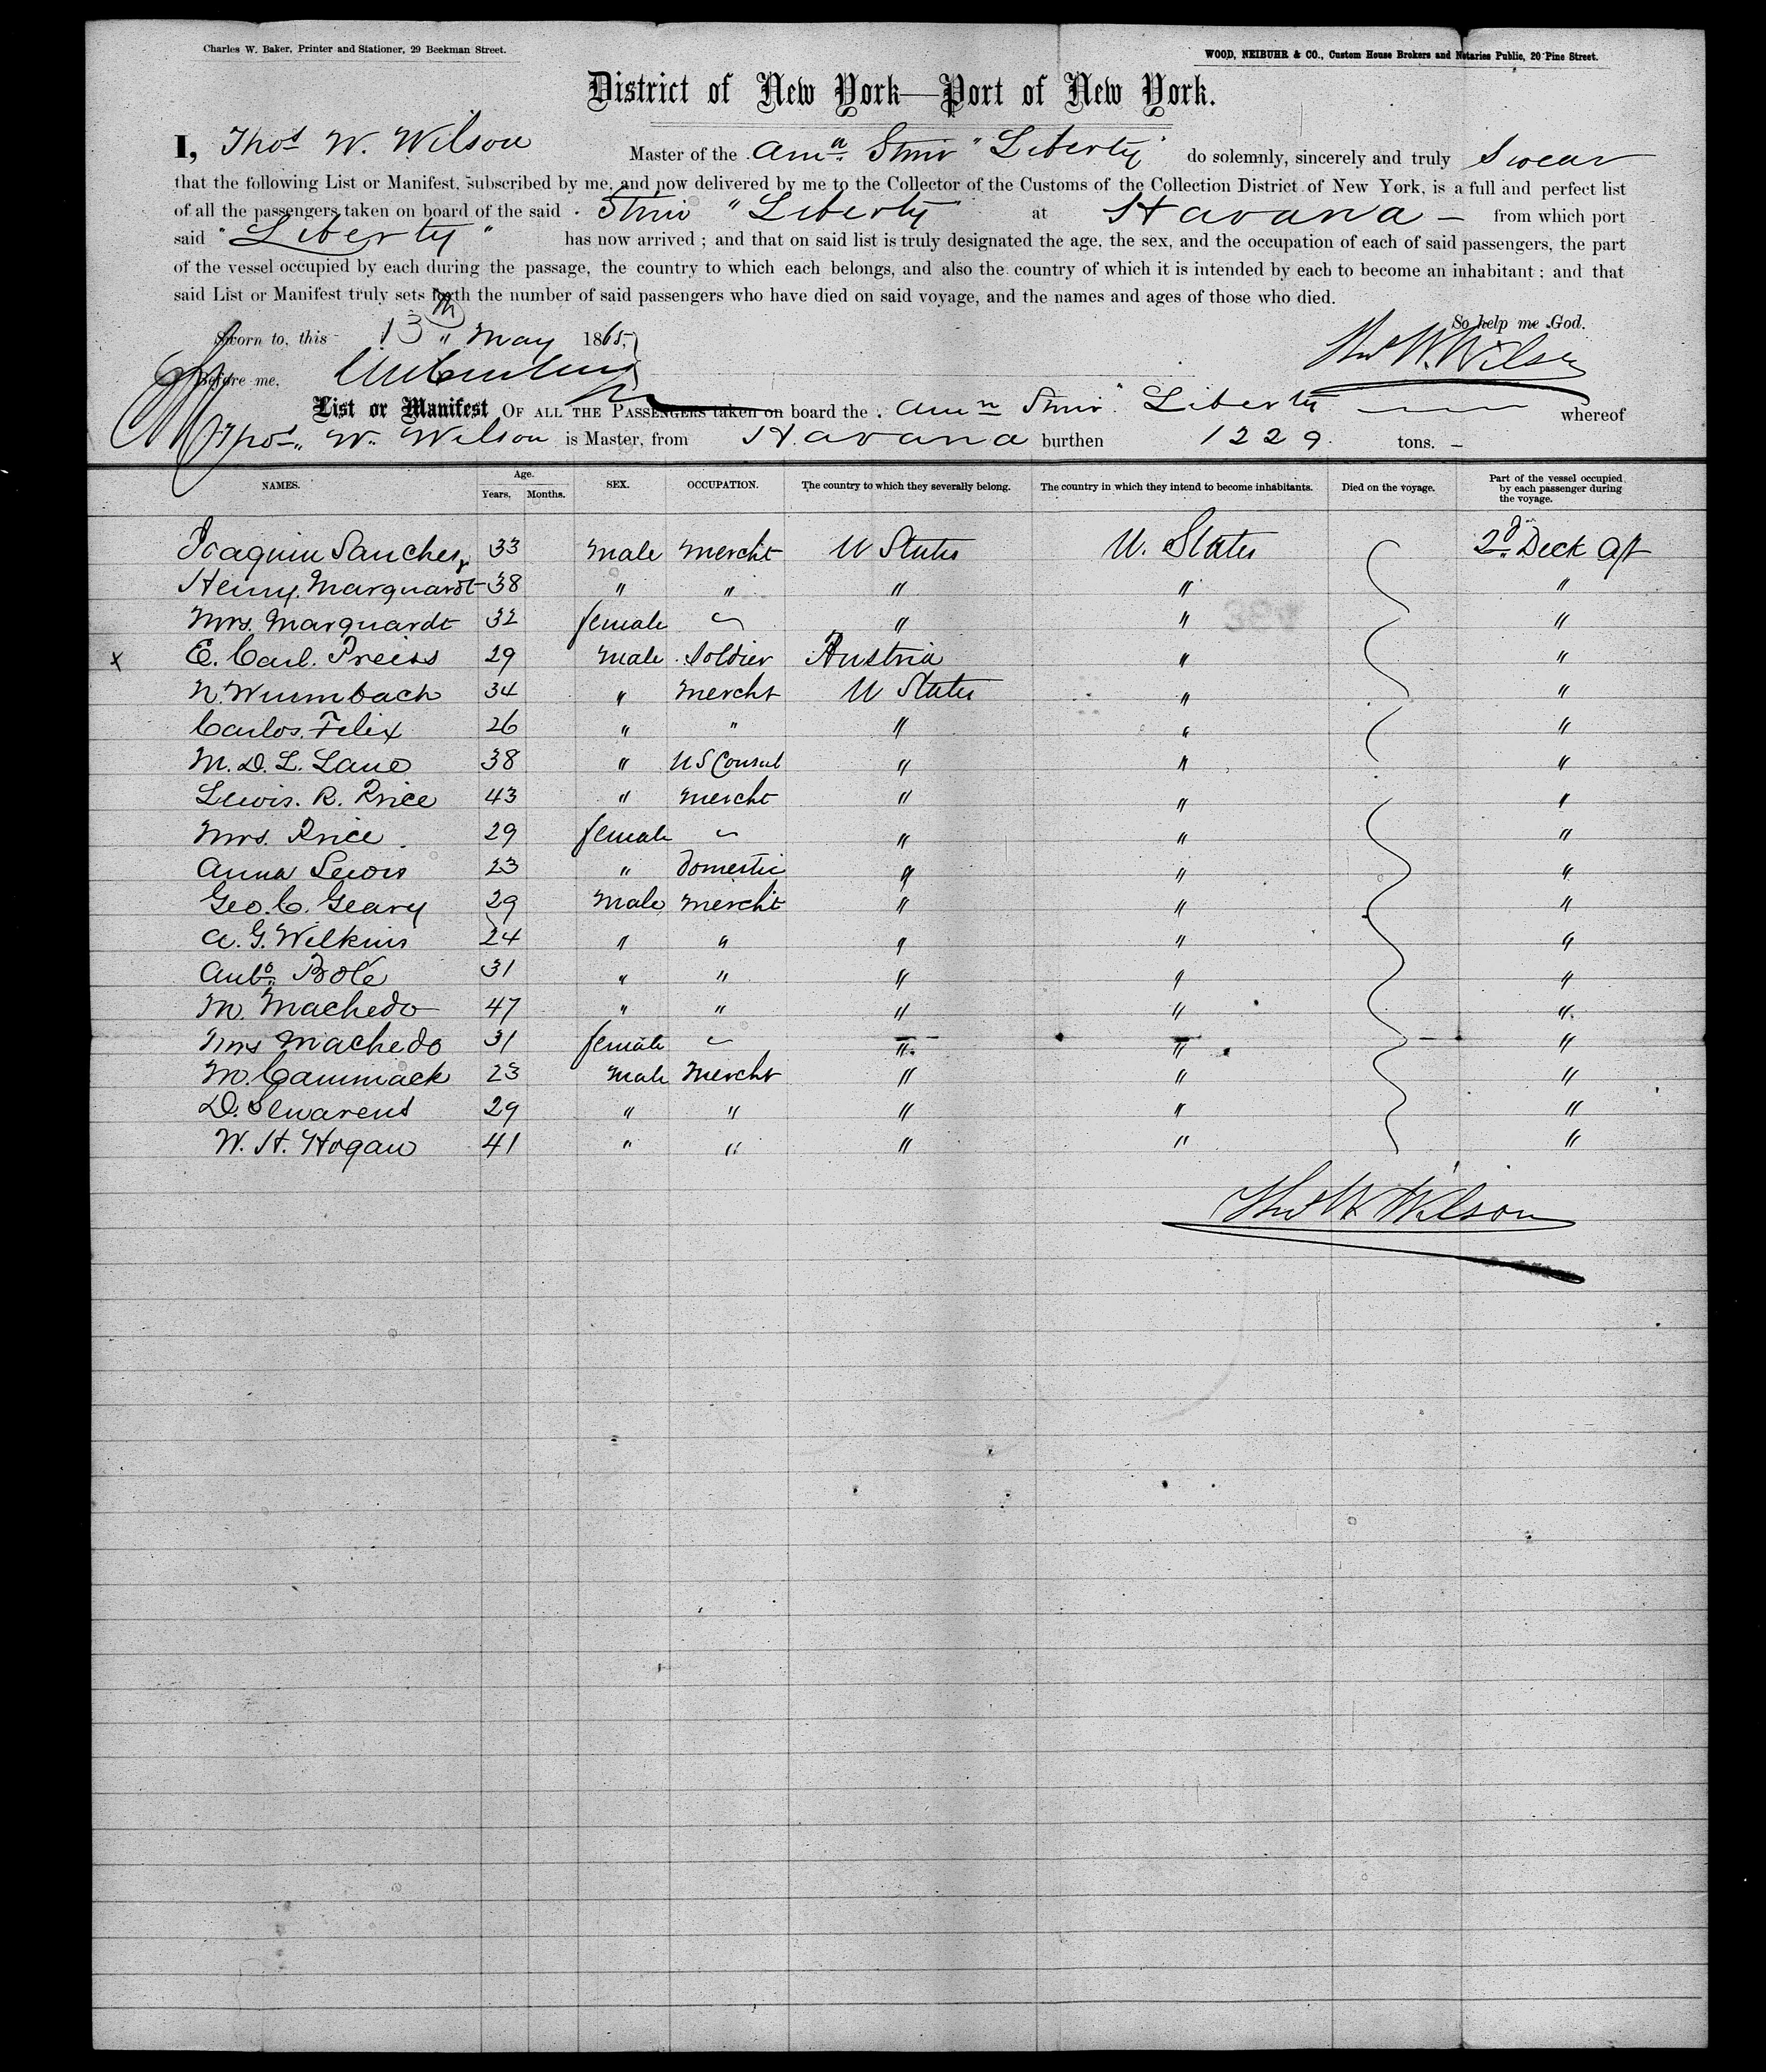 Charles W. Baker, Printer and Stationer, 29 Beekman Street.
WOOD, NEIBUHR & CO., Custom House Brokers and Notaries Public, 20 Pine Street.
District of New York—Port of New York.
I, Thos W. Wilson Master of the Amn Stmr "Liberty" do solemnly, sincerely and truly Swear
that the following List or Manifest, subscribed by me, and now delivered by me to the Collector of the Customs of the Collection District of New York, is a full and perfect list
of all the passengers taken on board of the said Stmr "Liberty" at Havana — from which port
said "Liberty" has now arrived; and that on said list is truly designated the age, the sex, and the occupation of each of said passengers, the part
of the vessel occupied by each during the passage, the country to which each belongs, and also the country of which it is intended by each to become an inhabitant; and that
said List or Manifest truly sets forth the number of said passengers who have died on said voyage, and the names and ages of those who died.
So help me God.
Sworn to, this 13th " May 1865,
Thos W. Wilson
Before me,
List or Manifest OF ALL THE PASSENGERS taken on board the Amn Stmr "Liberty — whereof
Thos " W. Wilson is Master, from Havana burthen 1229 tons. —
NAMES. Age. Years. Months. SEX. OCCUPATION. The country to which they severally belong. The country in which they intend to become inhabitants. Died on the voyage. Part of the vessel occupied by each passenger during the voyage.
Joaquin Sanchez 33 male mercht U States U. States 2d Deck Aft
Henry Marquardt 38 " " " " "
Mrs. Marquardt 32 female " " "
x E. Carl. Preiss 29 male Soldier Austria " "
N. Wurmbach 34 " mercht U States " "
Carlos. Felix 26 " " " " "
M. D. L. Lane 38 " US Consul " " "
Lewis. R. Price 43 " mercht " " "
Mrs. Price 29 female " " "
Anna Lewis 23 " domestic " " "
Geo. C. Geary 29 male mercht " " "
A. G. Wilkins 24 " " " " "
31 " " " " "
M. Machedo 47 " " " " "
Mrs Machedo 31 female " " "
M. Cammack 23 male Mercht " " "
D. 29 " " " " "
W. H. Hogan 41 " " " " "
Thos W Wilson